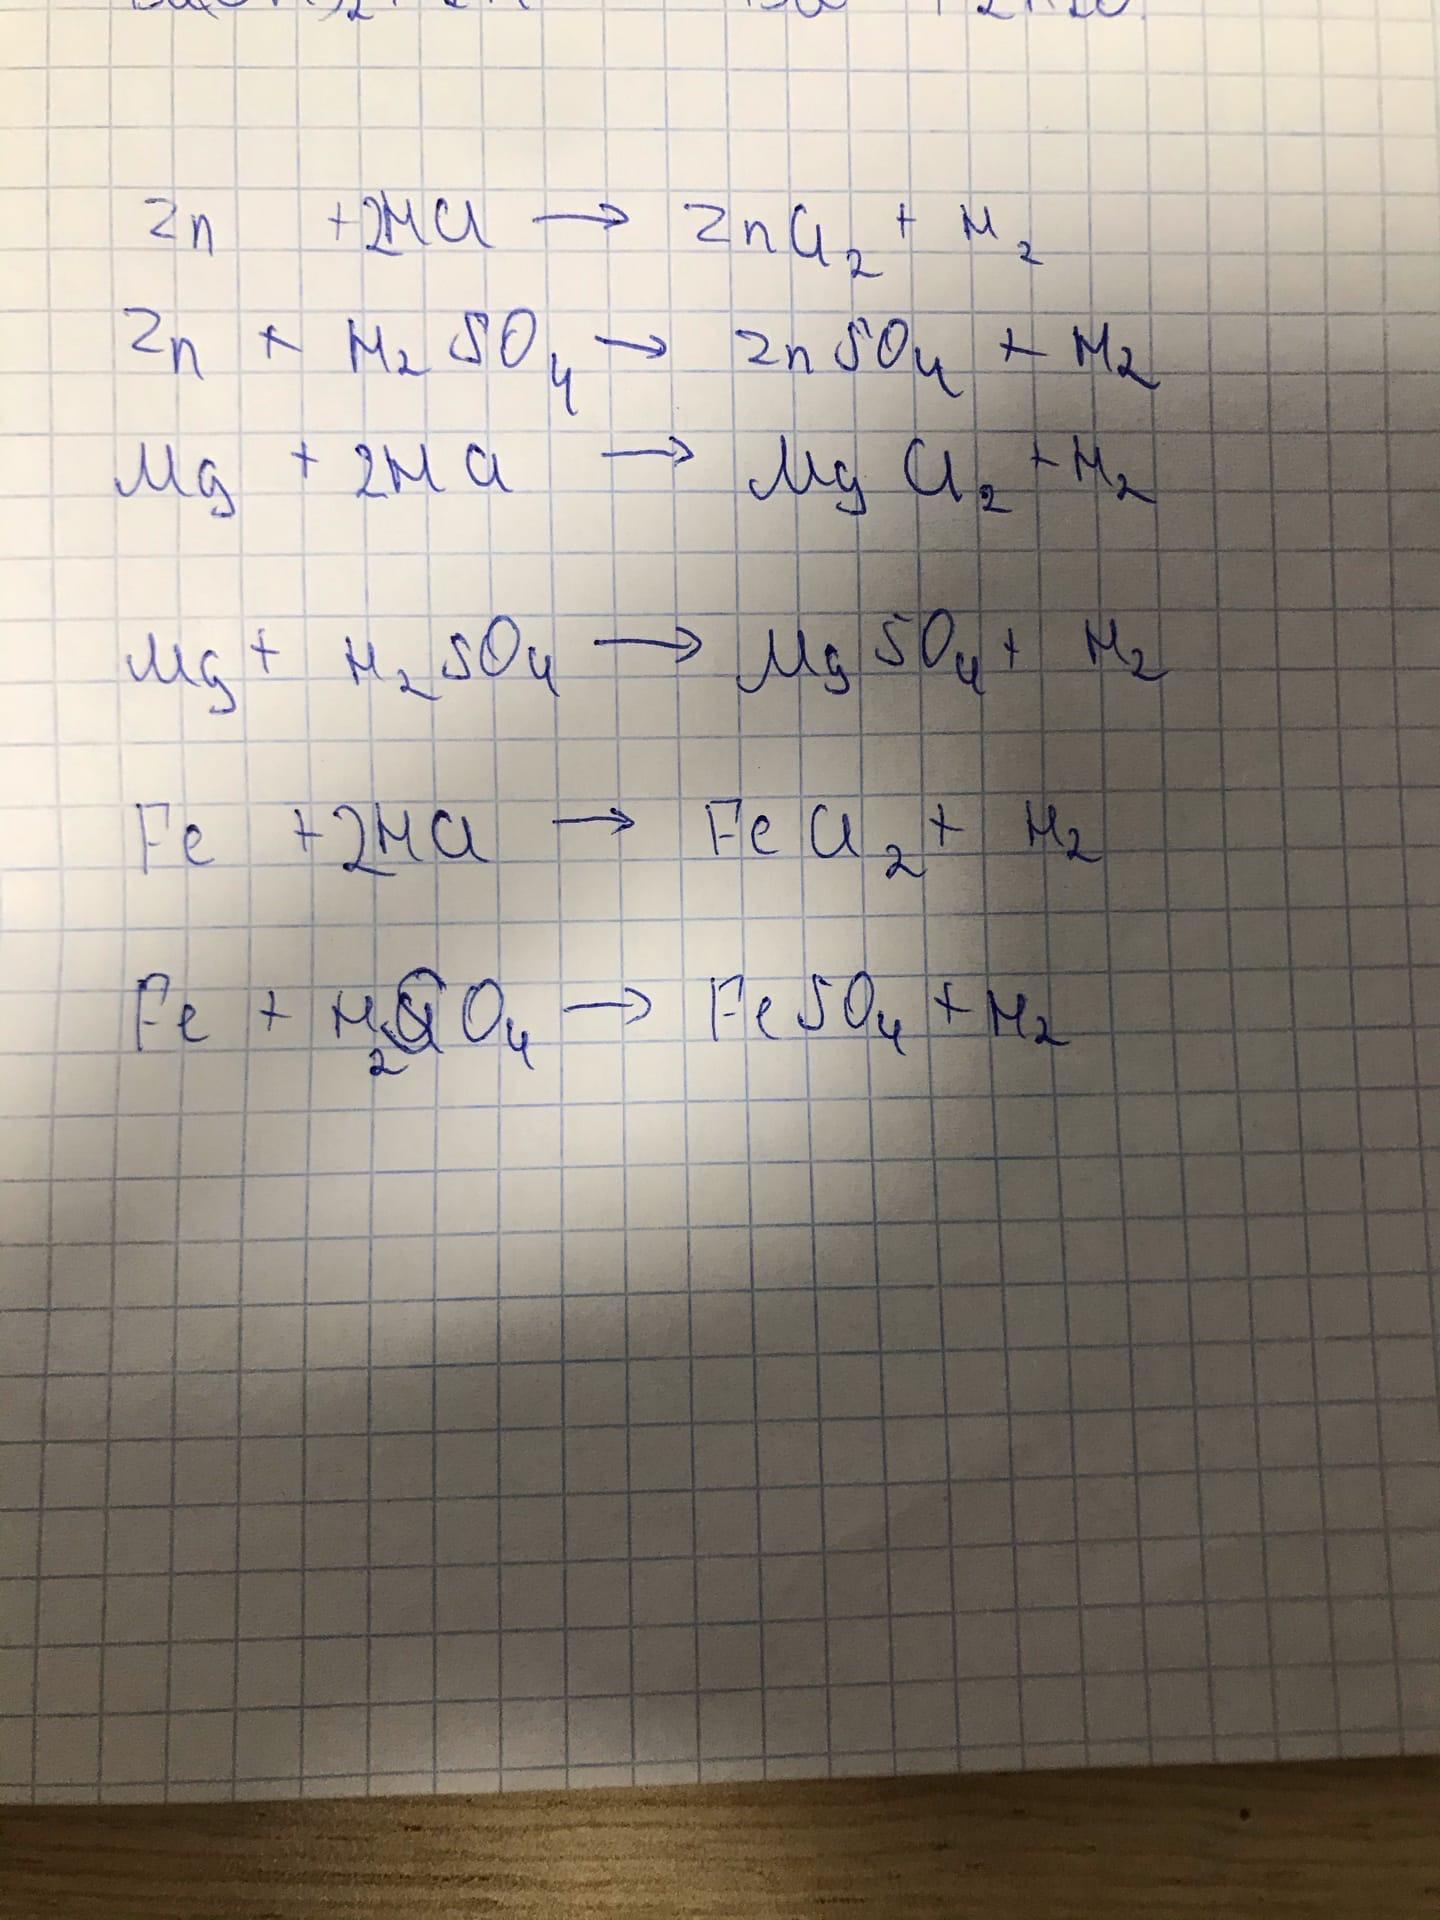 Zn + 2HCl → ZnCl₂ + H₂
Zn + H₂SO₄ → ZnSO₄ + H₂
Mg + 2HCl → MgCl₂ + H₂
Mg + H₂SO₄ → MgSO₄ + H₂
Fe + 2HCl → FeCl₂ + H₂
Fe + H₂SO₄ → FeSO₄ + H₂